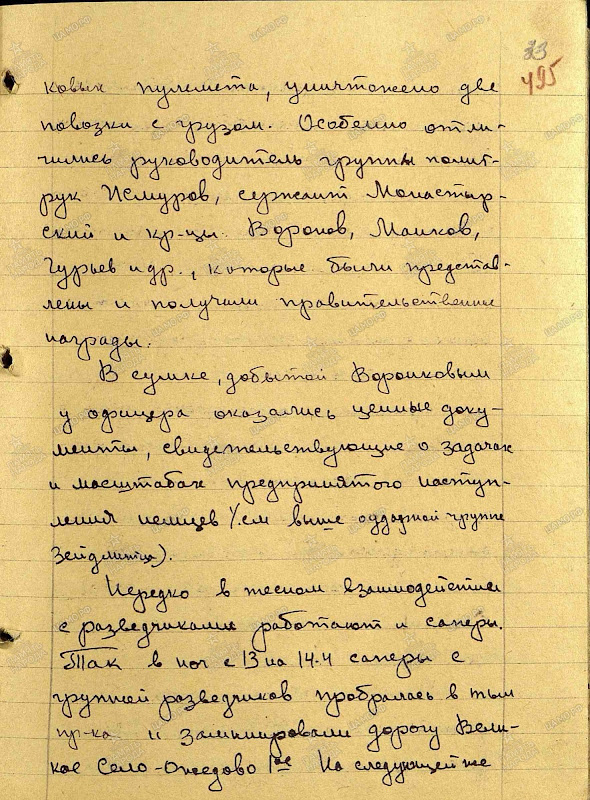 33
495
ковых пулемета, уничтожено две
повозки с грузом. Особенно отли-
чились руководитель группы полит-
рук Исмуров, сержант Монастыр-
ский и кр-цы Воронов, Маиков,
Гурьев и др., которые были представ-
лены и получили правительственные
награды.
В сумке, добытой Воронковым
у офицера оказались ценные доку-
менты, свидетельствующие о задачах
и масштабах предпринятого наступ-
ления немцев /см выше о ударной группе
Зейдлитца).
Нередко в тесном взаимодействии
с разведчиками работают и саперы.
Так в ноч с 13 на 14.4 саперы с
группой разведчиков пробралась в тыл
пр-ка и заминировали дорогу Вели-
кое Село-Ожедово 1ое На следующей же